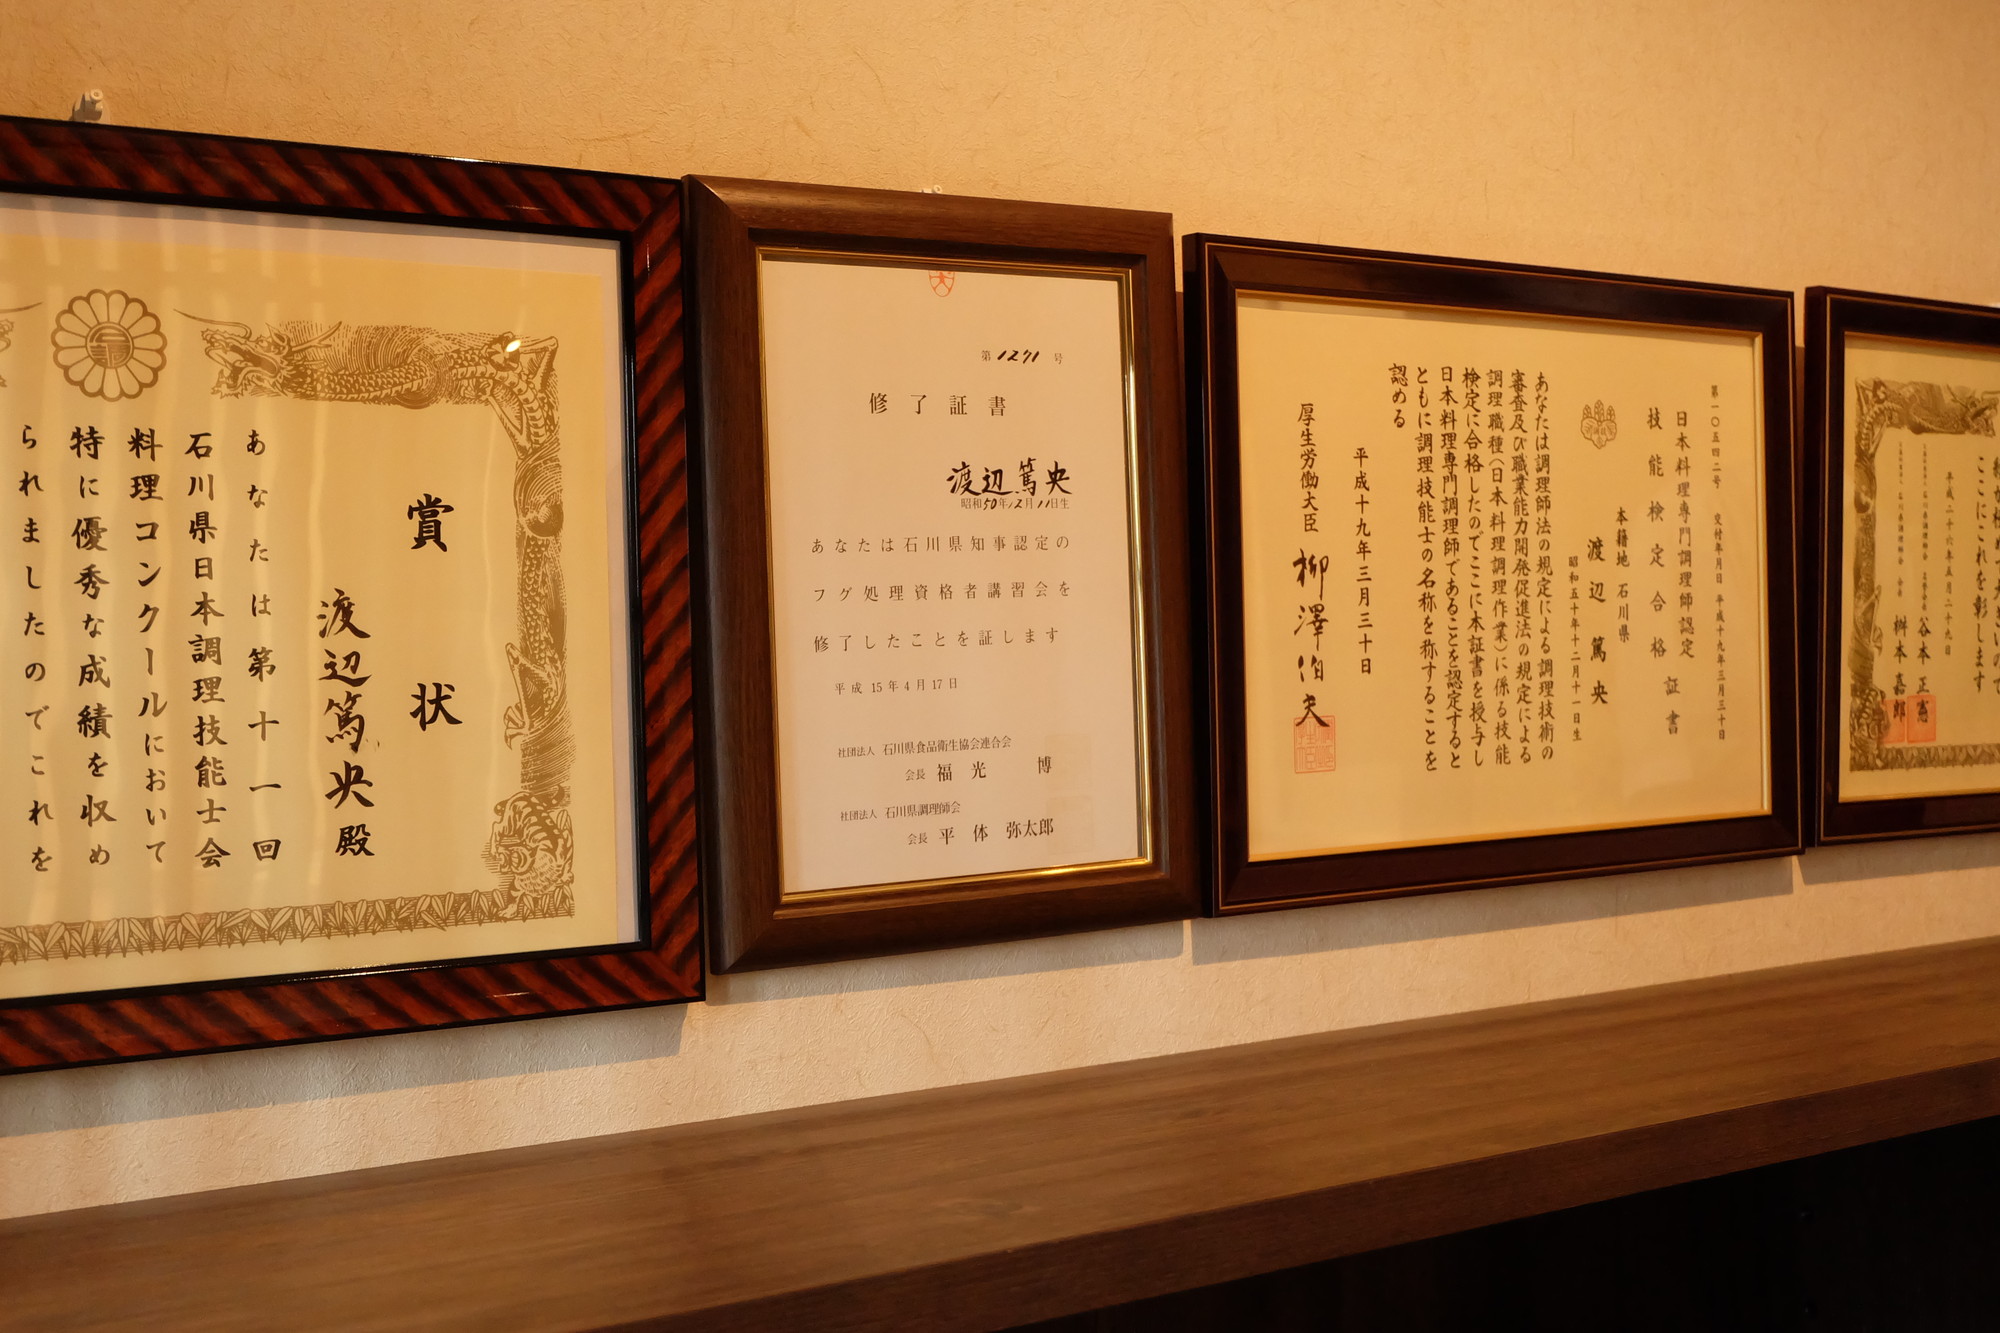 賞状
渡辺篤央殿
あなたは第十一回
石川県日本調理技能士会
料理コンクールにおいて
特に優秀な成績を収め
られましたのでこれを
第1271号
修了証書
渡辺篤央
昭和50年12月11日生
あなたは石川県知事認定の
フグ処理資格者講習会を
修了したことを証します
平成15年4月17日
社団法人 石川県食品衛生協会連合会
会長 福光 博
社団法人 石川県調理師会
会長 平体 弥太郎
第一〇五四二号 交付年月日 平成十九年三月三十日
日本料理専門調理師認定
技能検定合格証書
本籍地 石川県
渡辺篤央
昭和五十年十二月十一日生
あなたは調理師法の規定による調理技術の
審査及び職業能力開発促進法の規定による
調理職種(日本料理調理作業)に係る技能
検定に合格したのでここに本証書を授与し
日本料理専門調理師であることを認定すると
ともに調理技能士の名称を称することを
認める
平成十九年三月三十日
厚生労働大臣 柳澤伯夫
ここにこれを彰します
平成二十六年五月二十九日
谷本正憲
桝本嘉郎